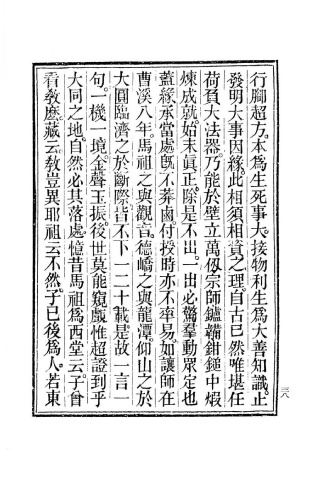 行脚超方。本為生死事大。接物利生。為大善知識。止
發明大事因緣。此相須相資之理。自古已然。唯堪任
荷負大法器。乃能於壁立萬仭。宗師鑪韛鉗鎚中。煅
煉成就。始末眞正。除是不出。一出必驚羣動眾定也。
蓋緣承當處旣不莽鹵。付授時亦不率易。如讓師在
曹溪八年。馬祖之與觀音。德嶠之與龍潭。仰山之於
大圓。臨濟之於斷際。皆不下一二十載。是故一言一
句。一機一境。金聲玉振。後世莫能窺覰。惟超證到乎
大同之地。自然必其落處。憶昔馬祖為西堂云。子曾
看教麽。藏云。教豈異耶。祖云。不然。子已後為人。若東
三八